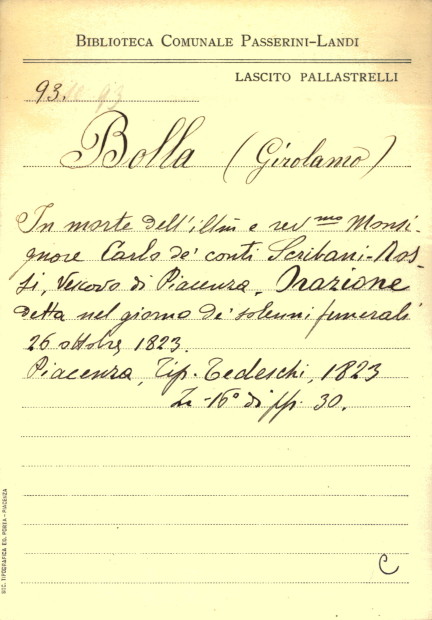 BIBLIOTECA COMUNALE PASSERINI-LANDI
LASCITO PALLASTRELLI
93.
Bolla (Girolamo)
In morte dell'illm̃ e rev mo Monsi-
gnore Carlo de' conti Scribani-Ros-
si, Vescovo di Piacenza. Orazione
detta nel giorno de' solenni funerali
26 ottobre 1823.
Piacenza, Tip. Tedeschi, 1823
In-16° di pp. 30.
C
SOC. TIPOGRAFICA ED. PORTA - PIACENZA